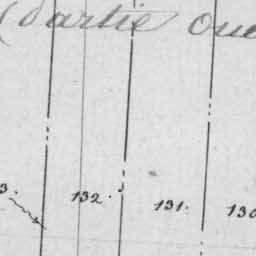 (Partie oue
3. 132. 131. 130